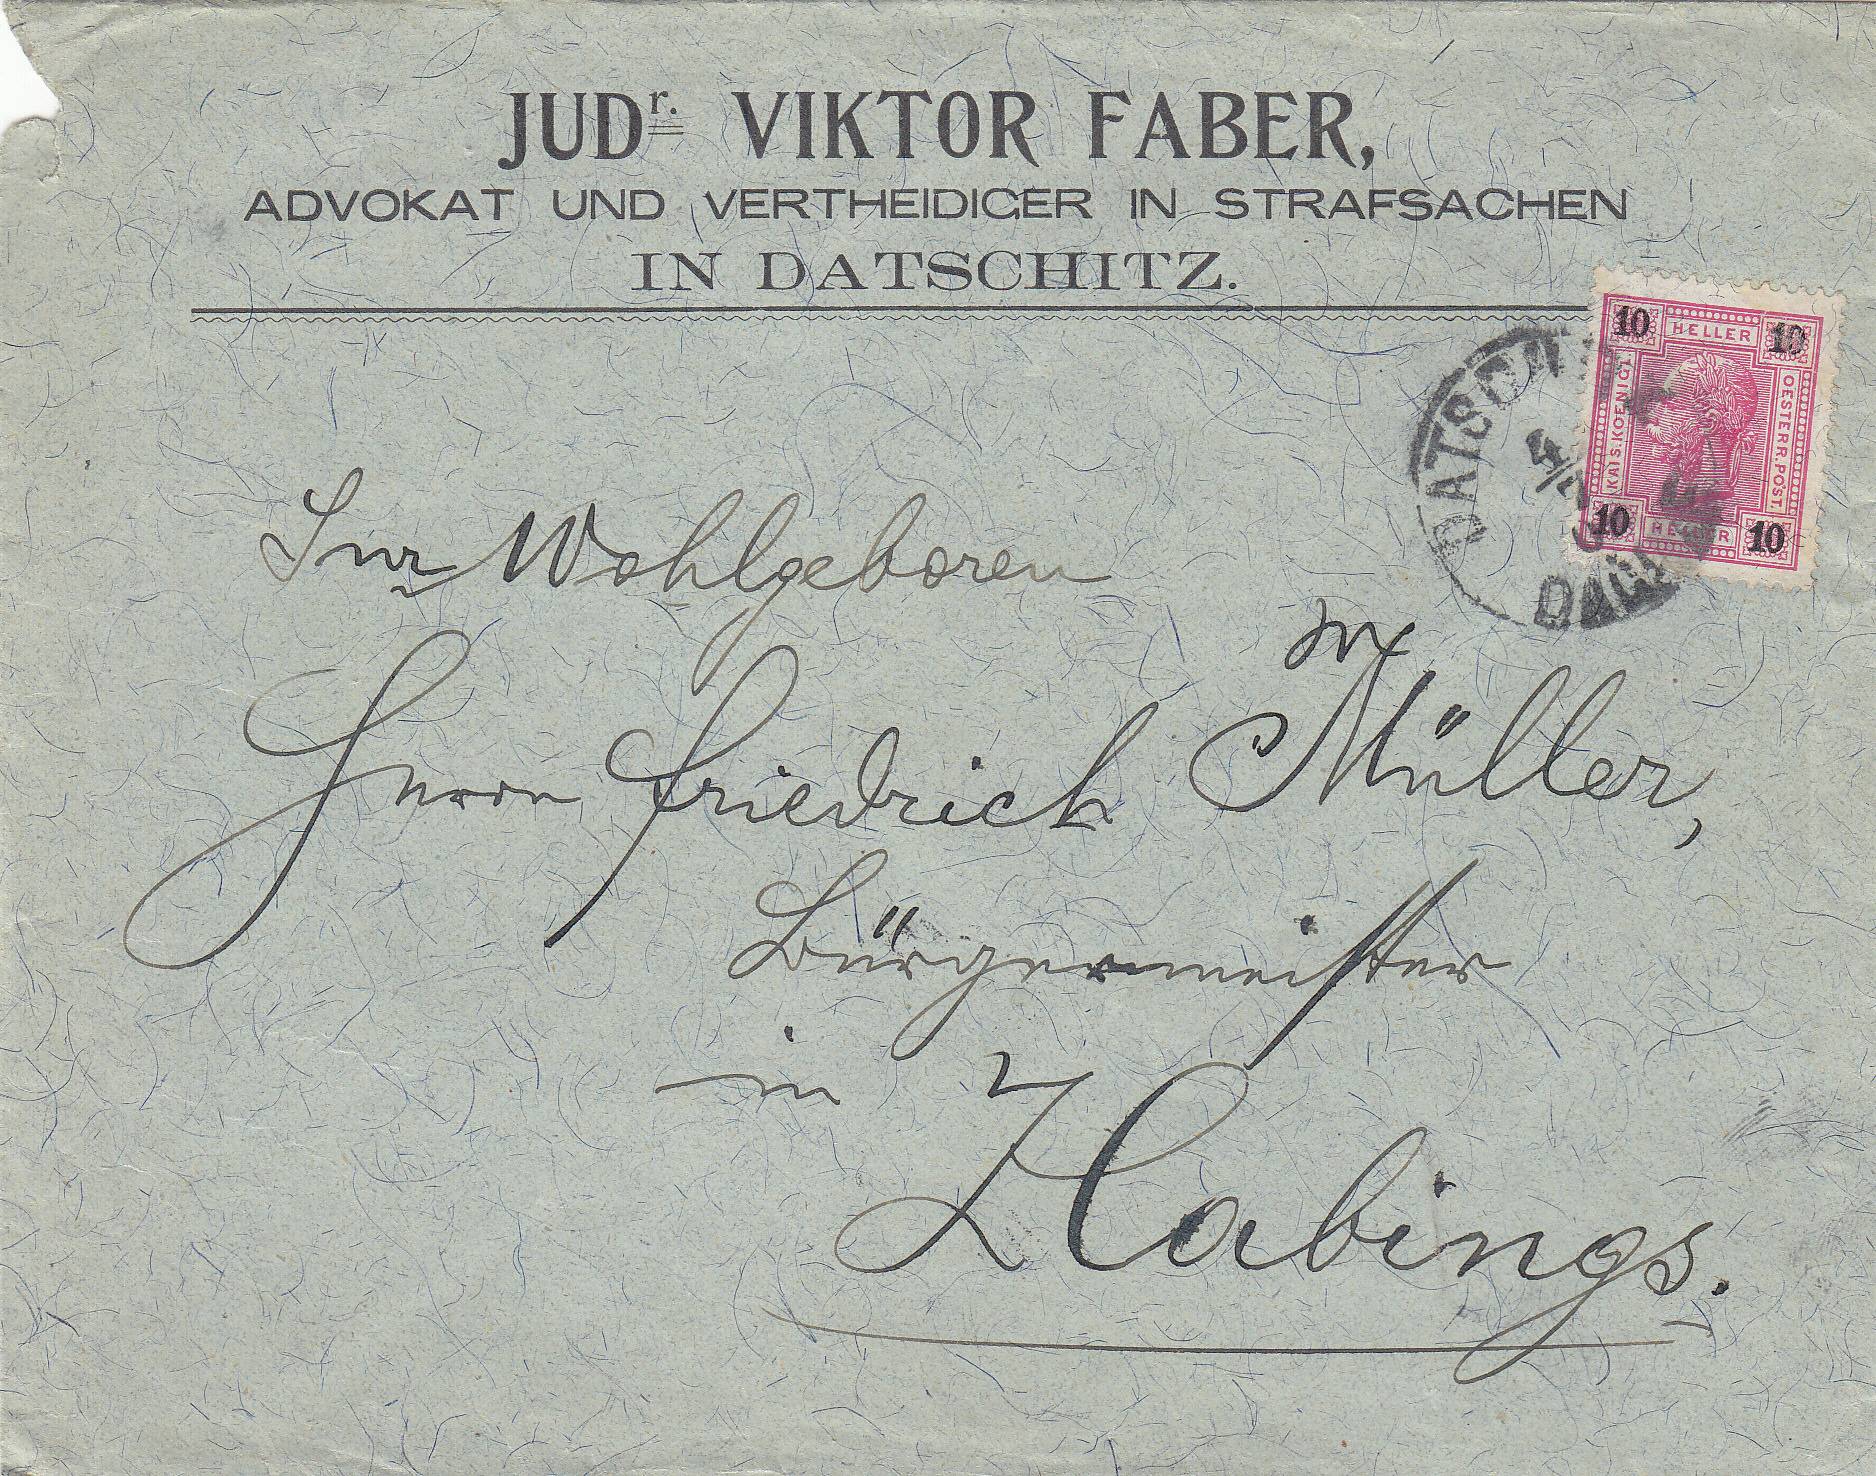 JUDr. VIKTOR FABER,
ADVOKAT UND VERTHEIDIGER IN STRAFSACHEN
IN DATSCHITZ.
10 HELLER 10
KAIS. KOENIGL.
OESTERR. POST.
10 HELLER 10
DATSCH
4
Wohlgeboren
Herrn Friedrich Müller,
Bürgermeister
in
Zlabings.